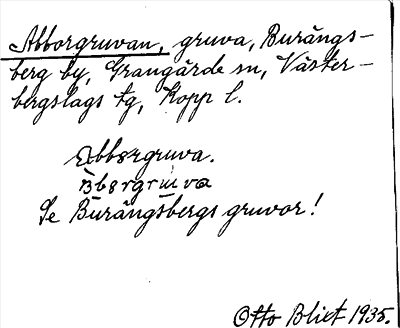 Abborgruvan, gruva, Burängs-
berg by, Grangärde sn, Väster-
bergslags tg, Kopp l.
Abborgruva.
Se Burängsbergs gruvor!
Otto Blixt 1935.